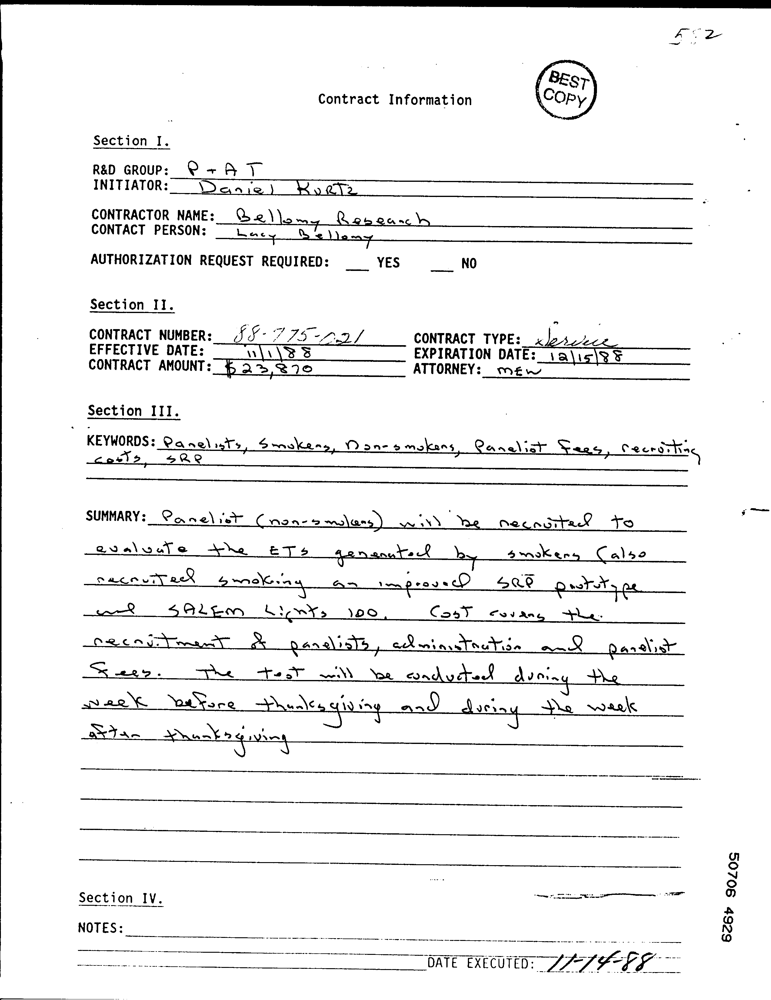 582
BEST
COPY
Contract Information
Section I.
R&D GROUP: P+AT
INITIATOR: Daniel Kurtz
CONTRACTOR NAME: Bellomy Research
CONTACT PERSON: Lacy Bellomy
AUTHORIZATION REQUEST REQUIRED: ___ YES ___ NO
Section II.
CONTRACT NUMBER: 88-775-021 CONTRACT TYPE: Service
EFFECTIVE DATE: 11/1/88 EXPIRATION DATE: 12/15/88
CONTRACT AMOUNT: $23,870 ATTORNEY: MEW
Section III.
KEYWORDS: Panelists, Smokers, Non-smokers, Panelist Fees, recruiting
costs, SRP
SUMMARY: Panelist (non-smokers) will be recruited to
evaluate the ETS generated by smokers (also
recruited smoking an improved SRP prototype
and SALEM Lights 100. Cost covers the
recruitment of panelists, administration and panelist
Fees. The test will be conducted during the
week before thanksgiving and during the week
after thanksgiving
Section IV.
NOTES:
DATE EXECUTED: 11-14-88
50706 4929